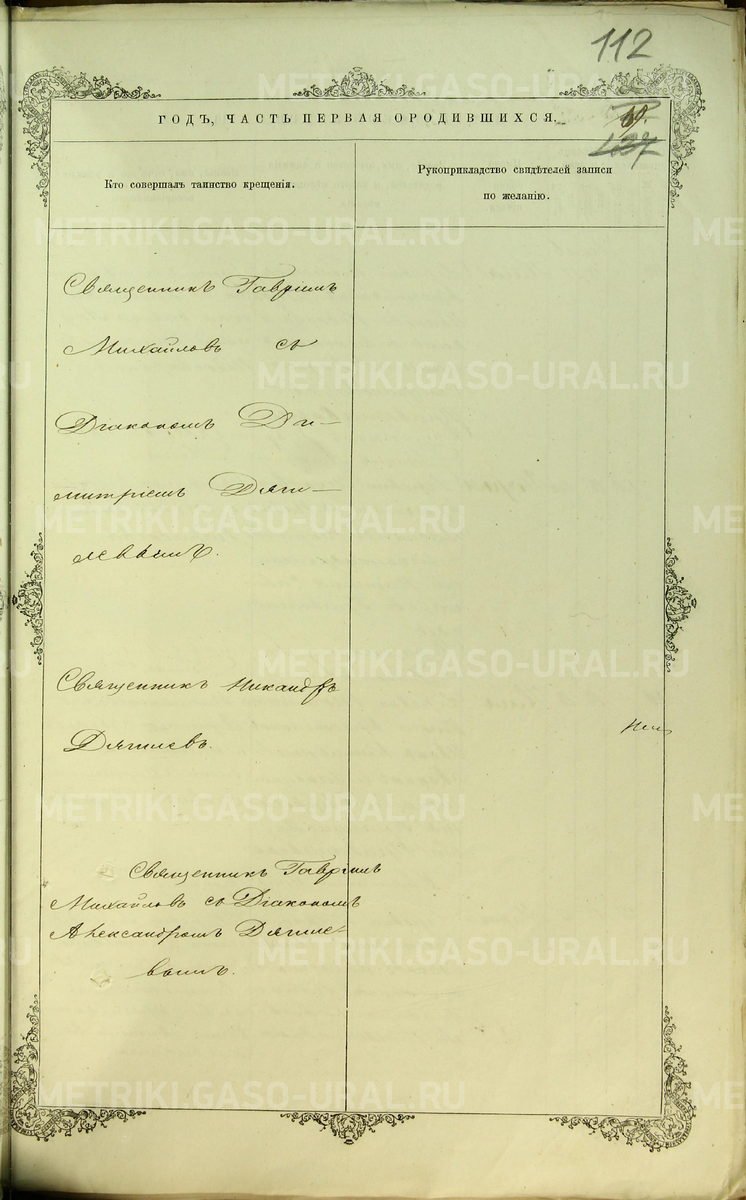 112
ГОДЪ, ЧАСТЬ ПЕРВАЯ О РОДИВШИХСЯ.
69.
137
Кто совершалъ таинство крещенія.
Рукоприкладство свидѣтелей записи
по желанію.
Священникъ Гавріилъ
Михайловъ съ
Діакономъ Ди-
митріемъ Дяги-
левымъ.
Священникъ Никандръ
Дягилевъ.
Священникъ Гавріилъ
Михайловъ съ Діакономъ
Александромъ Дягиле-
вымъ.
METRIKI.GASO-URAL.RU